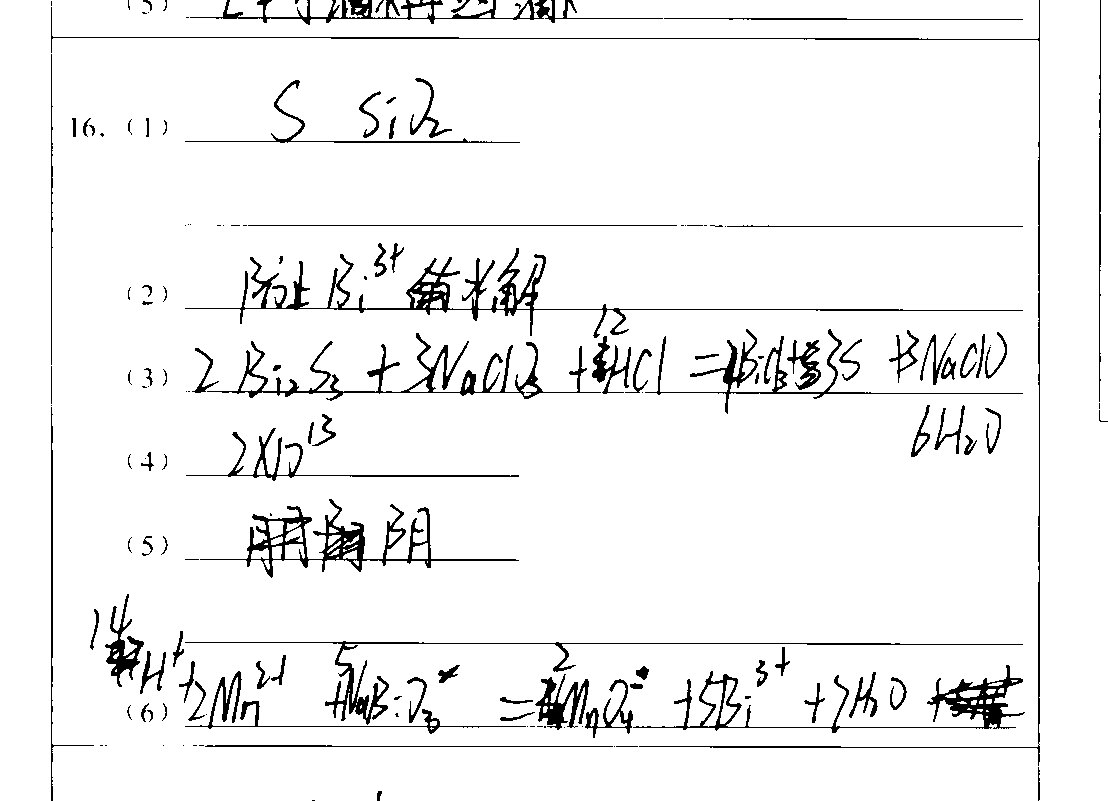 16. (1) S SiO₂
(2) 防止Bi³⁺水解
(3) 2Bi₂S₃ + 3NaClO₃ + 12HCl = 4BiCl₃ + 3S + 3NaClO
6H₂O
(4) 2×10¹³
(5) 阴
14H⁺
(6) +2Mn²⁺ +5NaBiO₃ = 2MnO₄⁻ +5Bi³⁺ +7H₂O